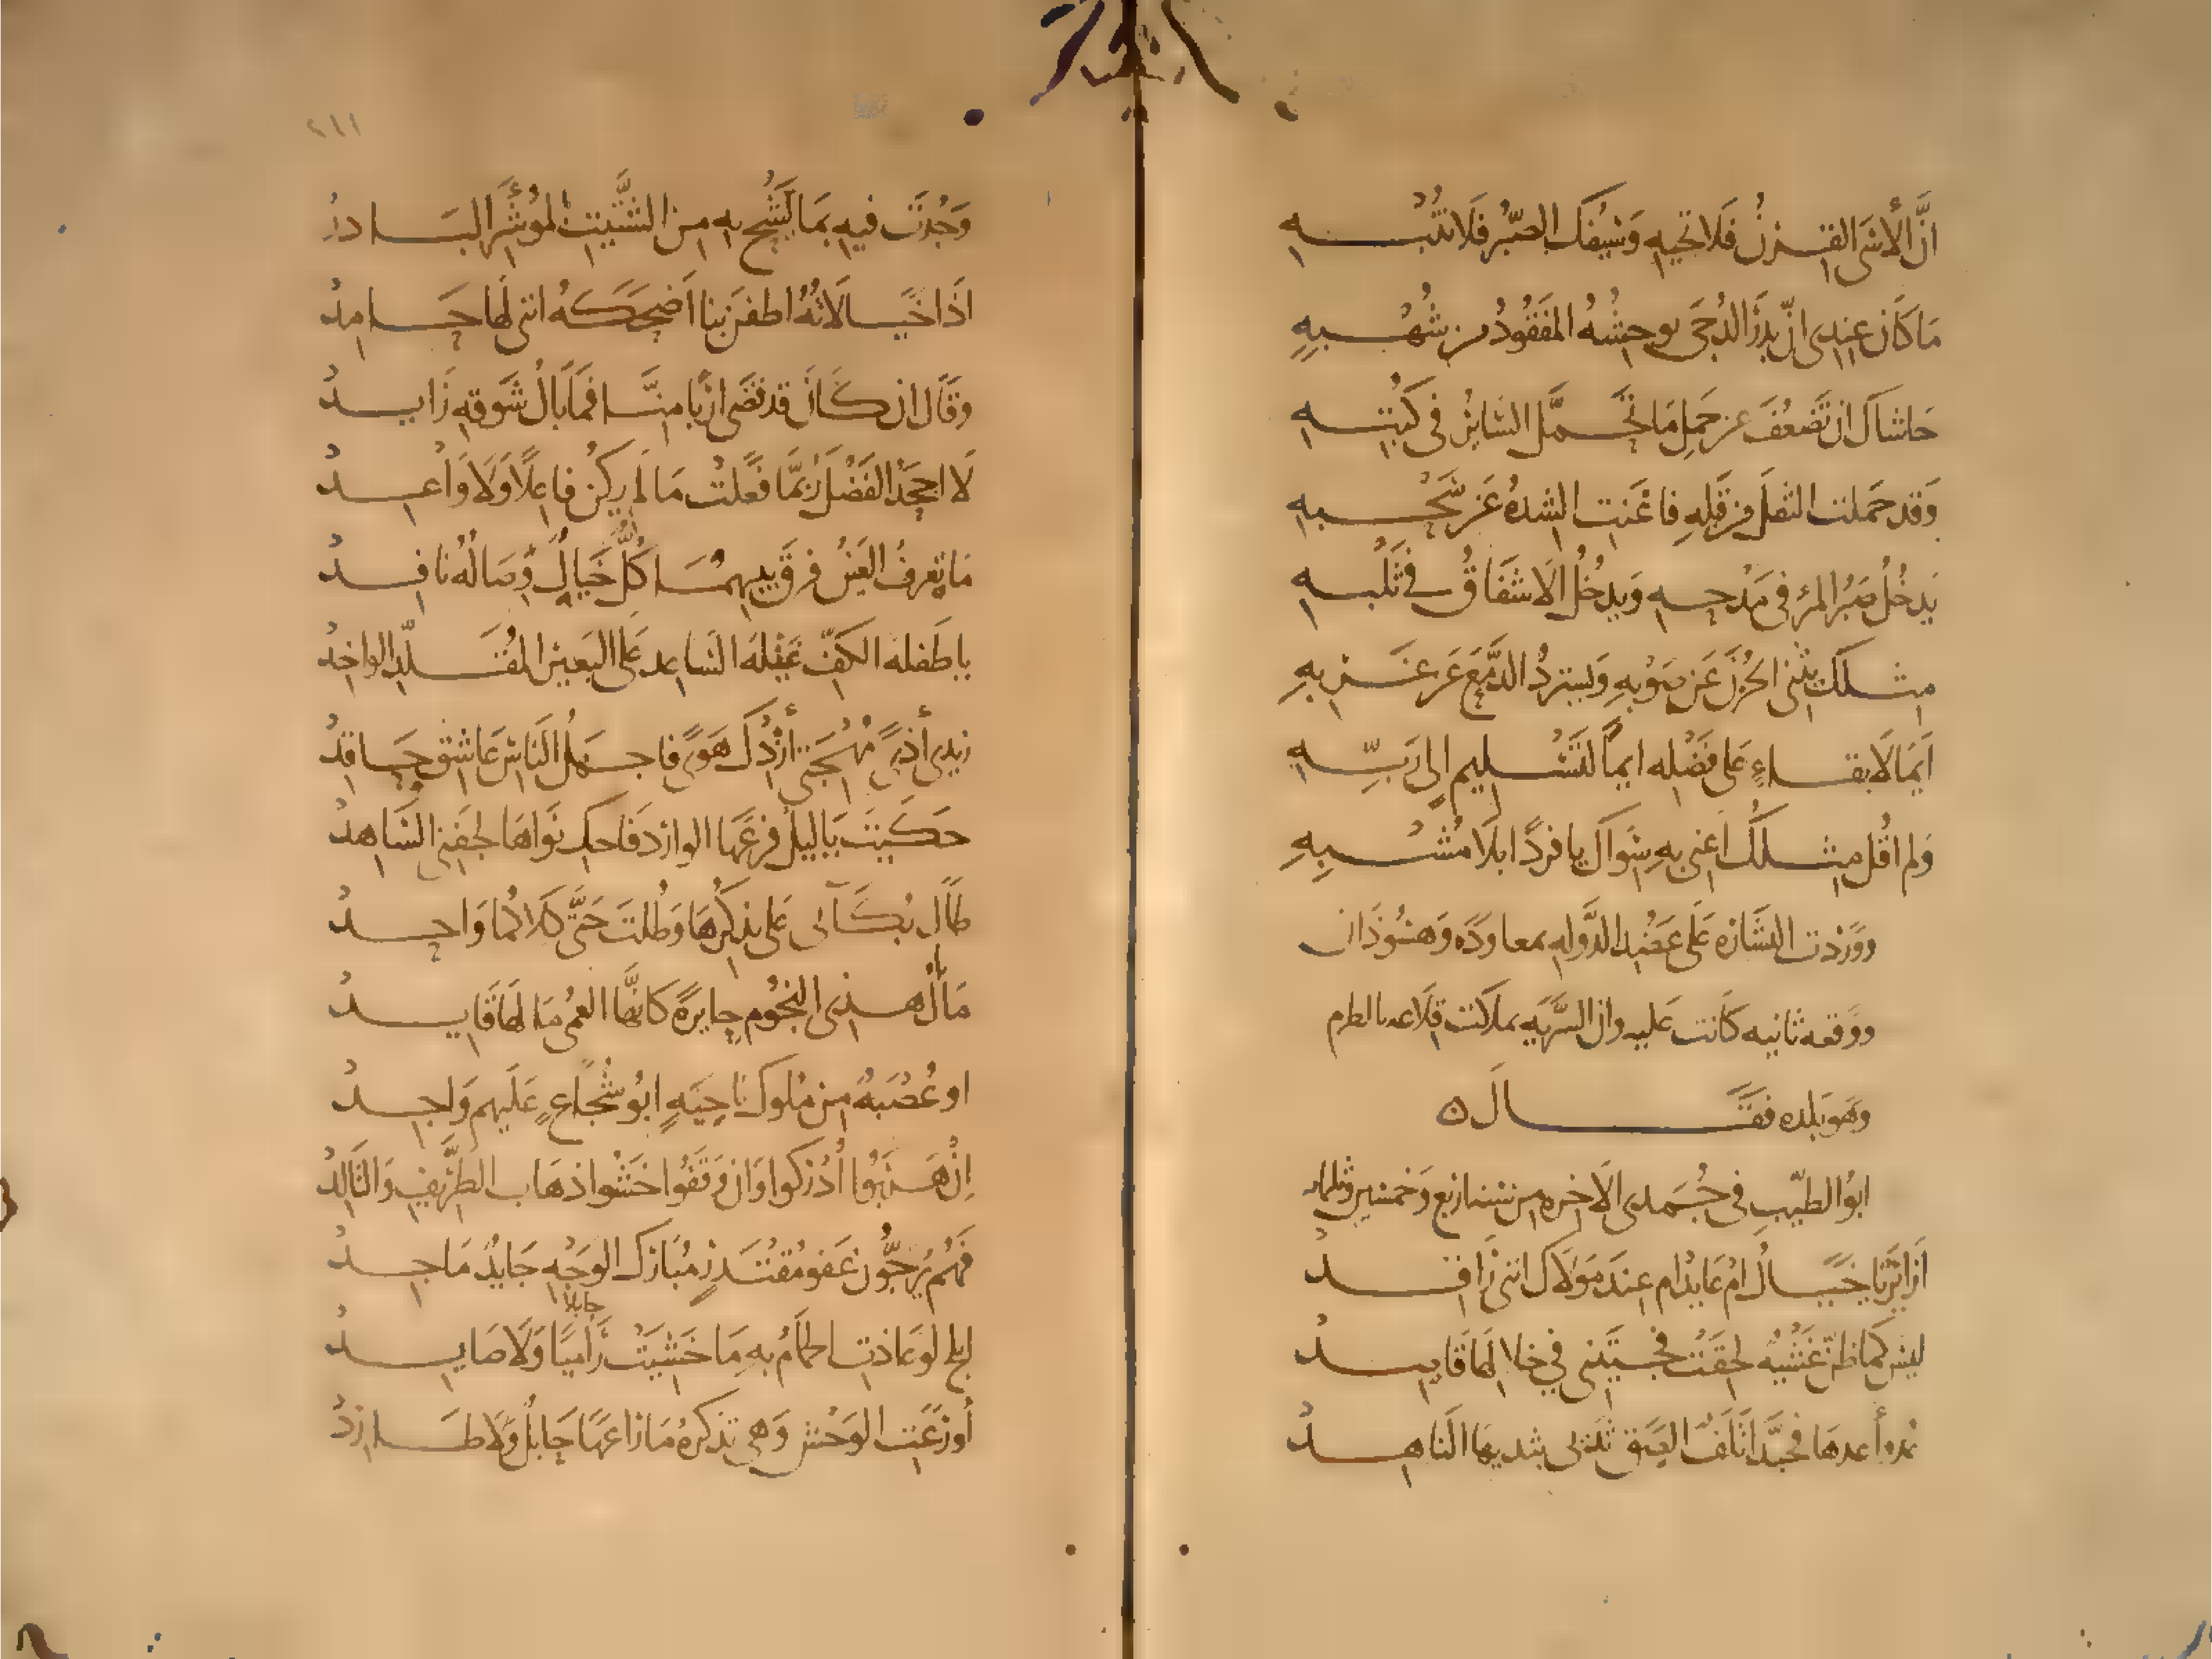 انَّ الأسَى القِرنُ فَلا تحيِهِ وَسَيفكَ الصّبرُ فَلا تُنْبِهِ
مَا كَانَ عِندِى انّ بَدرَ الدُجَى يوحِشُهُ المَفقُودُ من شُهبِهِ
حَاشاكَ ان تَضعُفَ عن حَملِ مَا تحَمَّلَ السَّائرُ فى كُتبِهِ
وَقد حَملت الثقلَ من قَبلِهِ فاغنَت الشدهُ عَن سَحْبِهِ
يَدخُلُ صَبرُ المرْءِ فى مَدْحِهِ وَيَدخُلُ الاشفَاقُ فى ثَلْبِهِ
مِثلكَ يثنى الحُزنَ عَن صَوْبِهِ وَيَستَردُ الدَّمعَ عَن غَربِهِ
اَيمَا لاَبقاءٍ عَلى فَضْلِه ايمَا لتَسْليمٍ الى رَبِّهِ
وَلم اقُل مثلكَ اعنى بِهِ سِوَاكَ يا فردًا بلَا مُشْبِهِ
ووَردت البشَارَه عَلى عَضُد الدَّولهِ بمعاودَه وَهسُوذَان
ووَقعه ثانيه كَانت عَليه وان السَّريَه ملكت قلَاعه بالطرم
وهَو بَلده فقَال
ابوُ الطيّبِ فى جُمدى الاخره من سنه اربَع وَخمسين وثلمائه
اَزائرٌ يا خَيالُ ام عَايدٌ ام عِندَ مَولاكَ اننى رَاقدُ
ليسَ كمَا ظَنّ غَشْيَهٌ لحقَتْ فجئتَنى فى خلالهَا قَاصِدُ
عُد وأعدهَا فحَبَّذَا تَلَفٌ الصَقَ ثَديى بثديهَا النَاهِدُ
٢١١
وَجُدتَ فيهِ بمَا يَشُحُّ بهِ مِنَ الشَّتيت المُؤشَّرِ البَاردُ
اذَا خَيَالاتُهُ اطفنَ بنا اَضحكَهُ اننى لهَا حَامِدُ
وقَالَ ان كَانَ قد قضَى اربًا منَّا فمَا بَالُ شَوقهِ زَايدُ
لَا اجحَدُ الفَضْلَ رُبمَّا فَعلَتْ مَا لم يكُنْ فاعِلًا وَلَا وَاعِدُ
مَا تعرفُ العَينُ فرقَ بيهمَا كُلٌّ خَيالٌ وِصَالُهُ نافِدُ
يا طَفلهَ الكفّ عَبْلهَ السَّاعِد عَلى البَعيرِ المُقَلّدِ الواخِدْ
زيدِى أذَى مُهجَتى أزِدْكَ هَوًى فاجهَلُ النَاسِ عَاشقٌ حَاقدُ
حَكَيتَ يَا ليلُ فرعَهَا الوارد فَاحكِ نَواهَا لجَفنى السَّاهدْ
طَالَ بُكَآئى عَلى تذكرُّهَا وَطُلتَ حَتَّى كلَاكمَا وَاحِدُ
مَا بالُ هذى النجُومِ حايرَةً كانهَّا العُمى مَا لهَا قَايدُ
او عُصْبَهٌ من مُلوكِ نَاحِيَةٍ ابوُ شُجَاعٍ عَلَيهم وَاجِدُ
اِن هَربُوا اُدركوا وَان وَقَفُوا خَشُوا ذهَاب الطَّريفِ وَالتَالِدْ
فَهُم يُرَجُّونَ عَفو مُقتَدرٍ مُبَاركِ الوَجْهِ جَايدٍ مَاجِدْ
حابلًا
ابلج لو عَاذت الحمَامُ بهِ مَا خَشيَتْ رَاميًا وَلَا صَايدُ
أو رَعَت الوَحْش وَهى تذكرُهُ مَا رَاعهَا حَابلٌ وَلَا طَاردُ